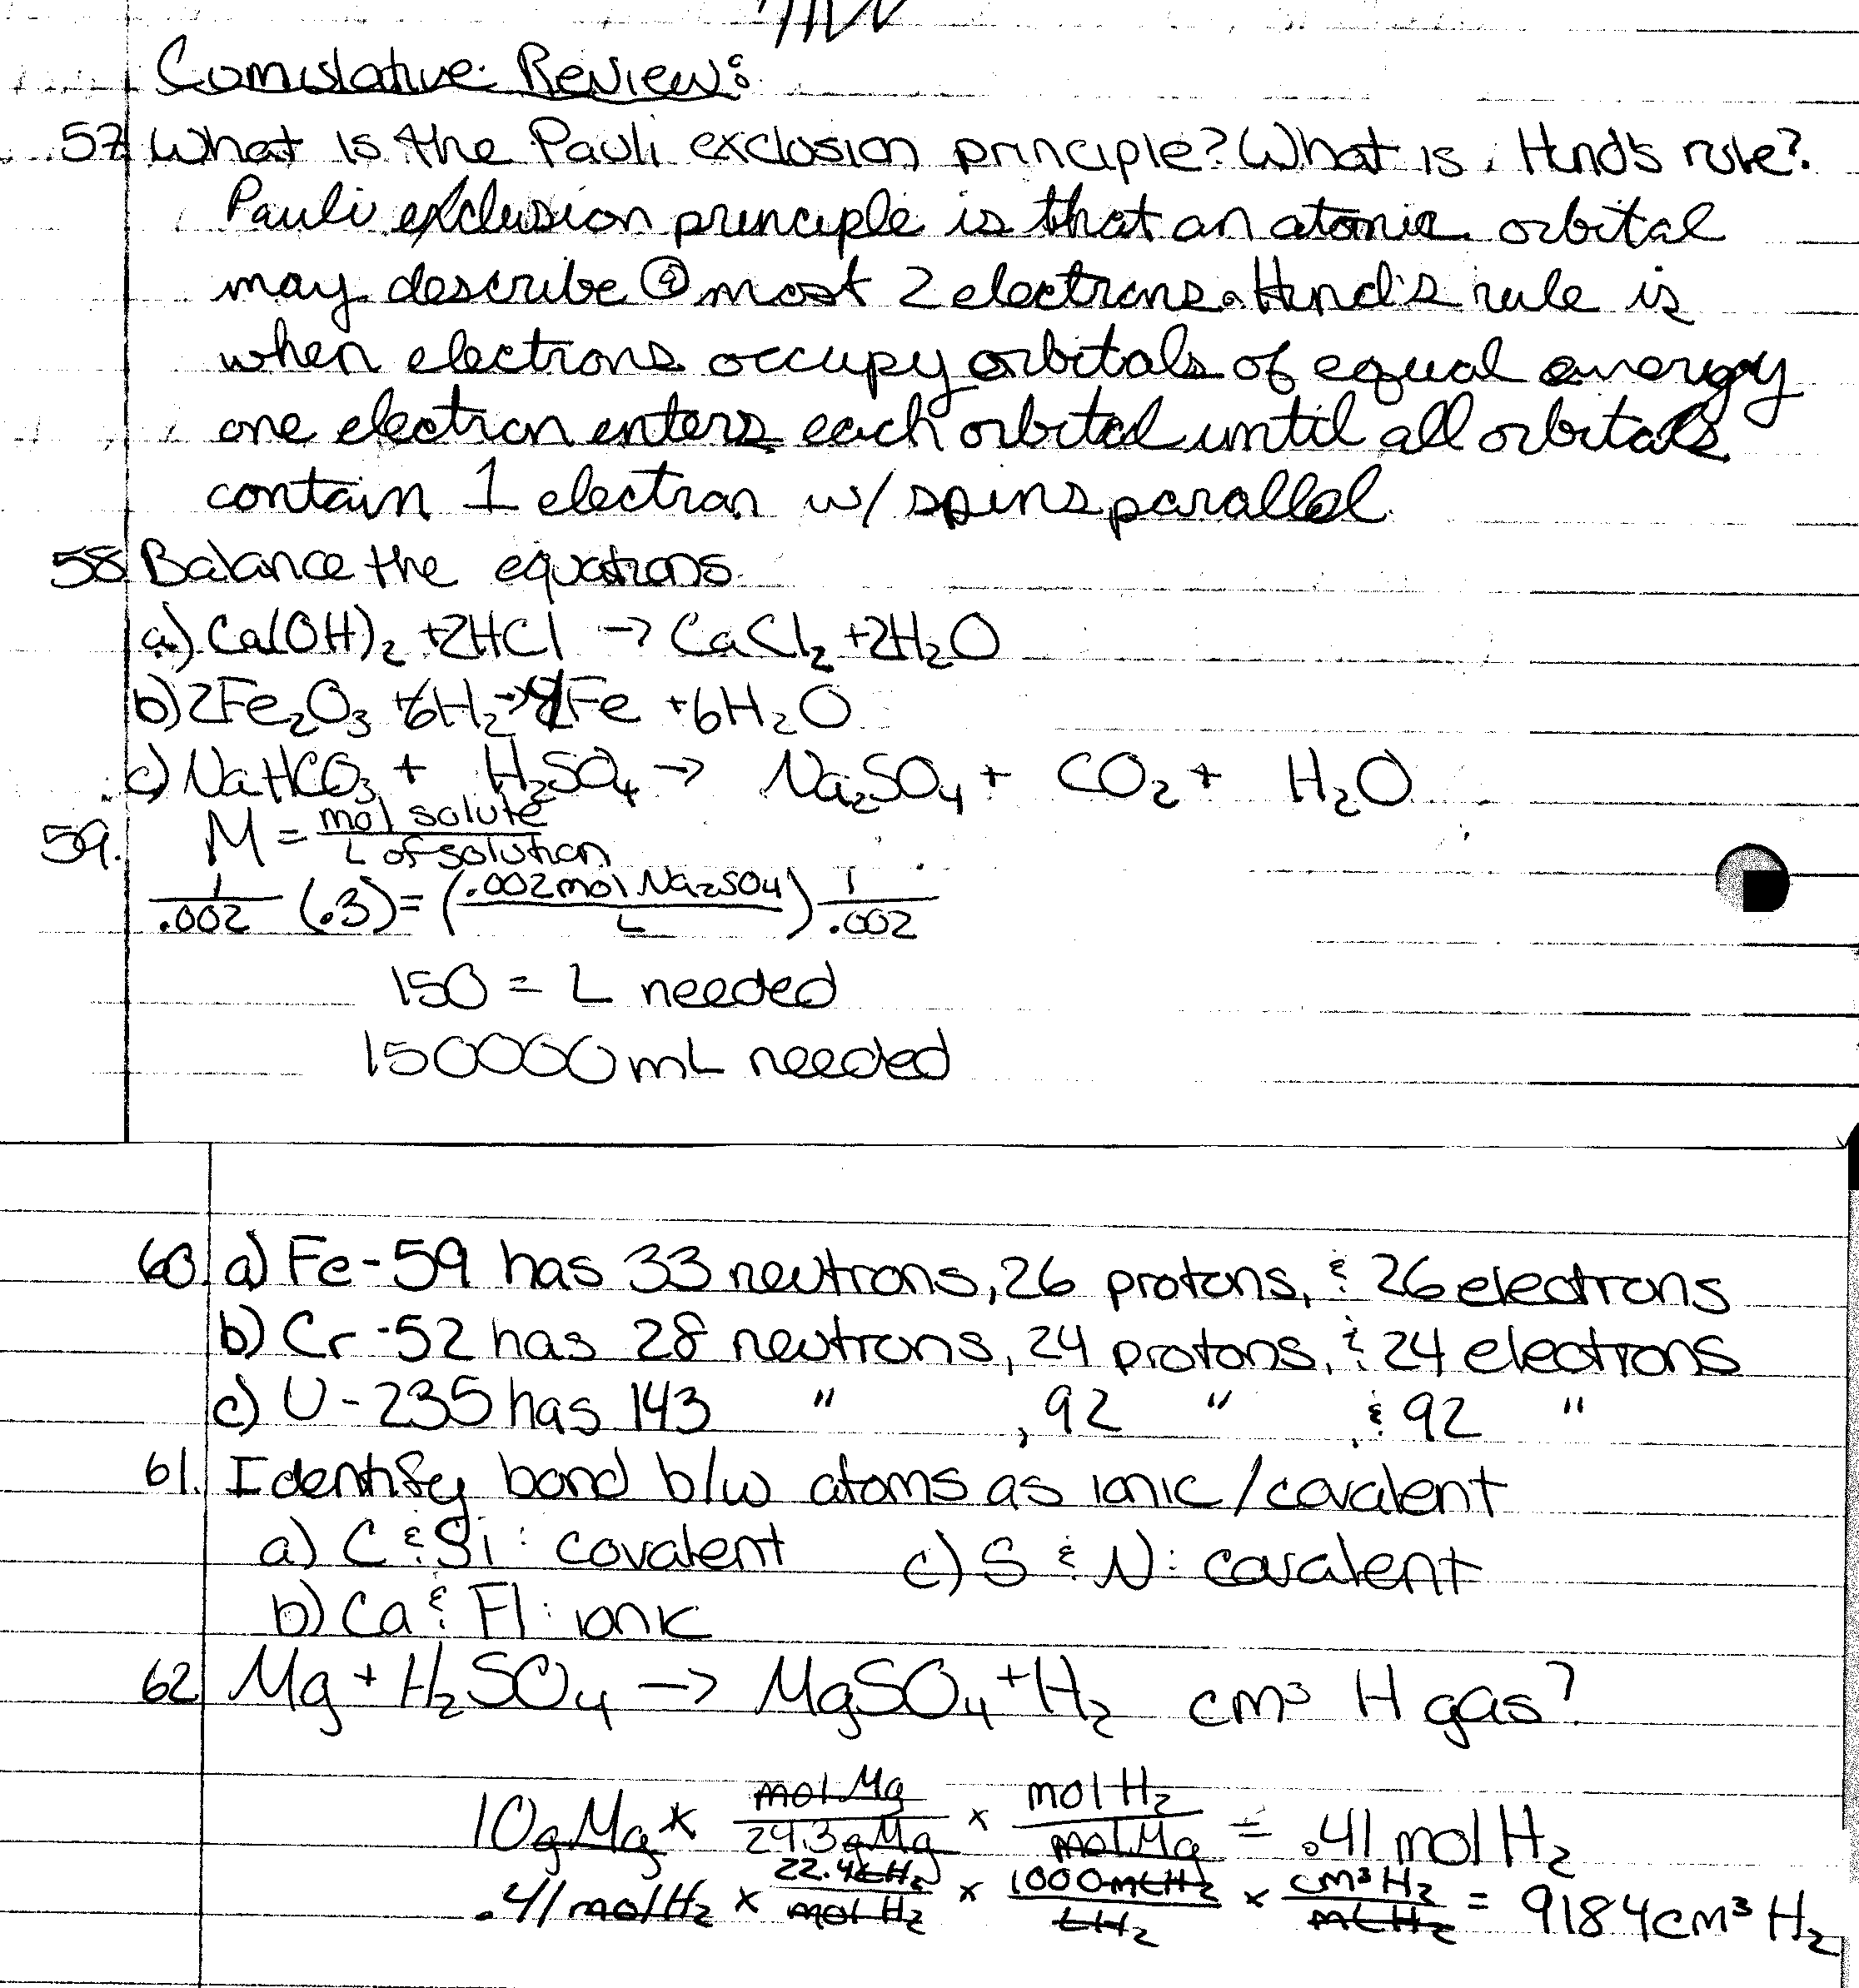 Cumulative Review:
57. What is the Pauli exclusion principle? What is Hund's rule?
Pauli exclusion principle is that an atomic orbital
may describe @ most 2 electrons. Hund's rule is
when electrons occupy orbitals of equal energy
one electron enters each orbital until all orbitals
contain 1 electron w/ spins parallel
58. Balance the equations
a) Ca(OH)₂ + 2HCl → CaCl₂ + 2H₂O
b) 2Fe₂O₃ + 6H₂ → 4Fe + 6H₂O
c) NaHCO₃ + H₂SO₄ → Na₂SO₄ + CO₂ + H₂O
59. M = mol solute / L of solution
1/.002 (.3) = (.002 mol Na₂SO₄ / L) 1/.002
150 = L needed
150000 mL needed
60. a) Fe-59 has 33 neutrons, 26 protons, & 26 electrons
b) Cr-52 has 28 neutrons, 24 protons, & 24 electrons
c) U-235 has 143 " , 92 " , & 92 "
61. Identify bond b/w atoms as ionic/covalent
a) C & Si : covalent c) S & N : covalent
b) Ca & Fl : ionic
62. Mg + H₂SO₄ → MgSO₄ + H₂ cm³ H gas?
10gMg × mol Mg / 24.3gMg × mol H₂ / mol Mg = .41 mol H₂
.41 mol H₂ × 22.4L H₂ / mol H₂ × 1000 mL H₂ / L H₂ × cm³ H₂ / mL H₂ = 9184 cm³ H₂